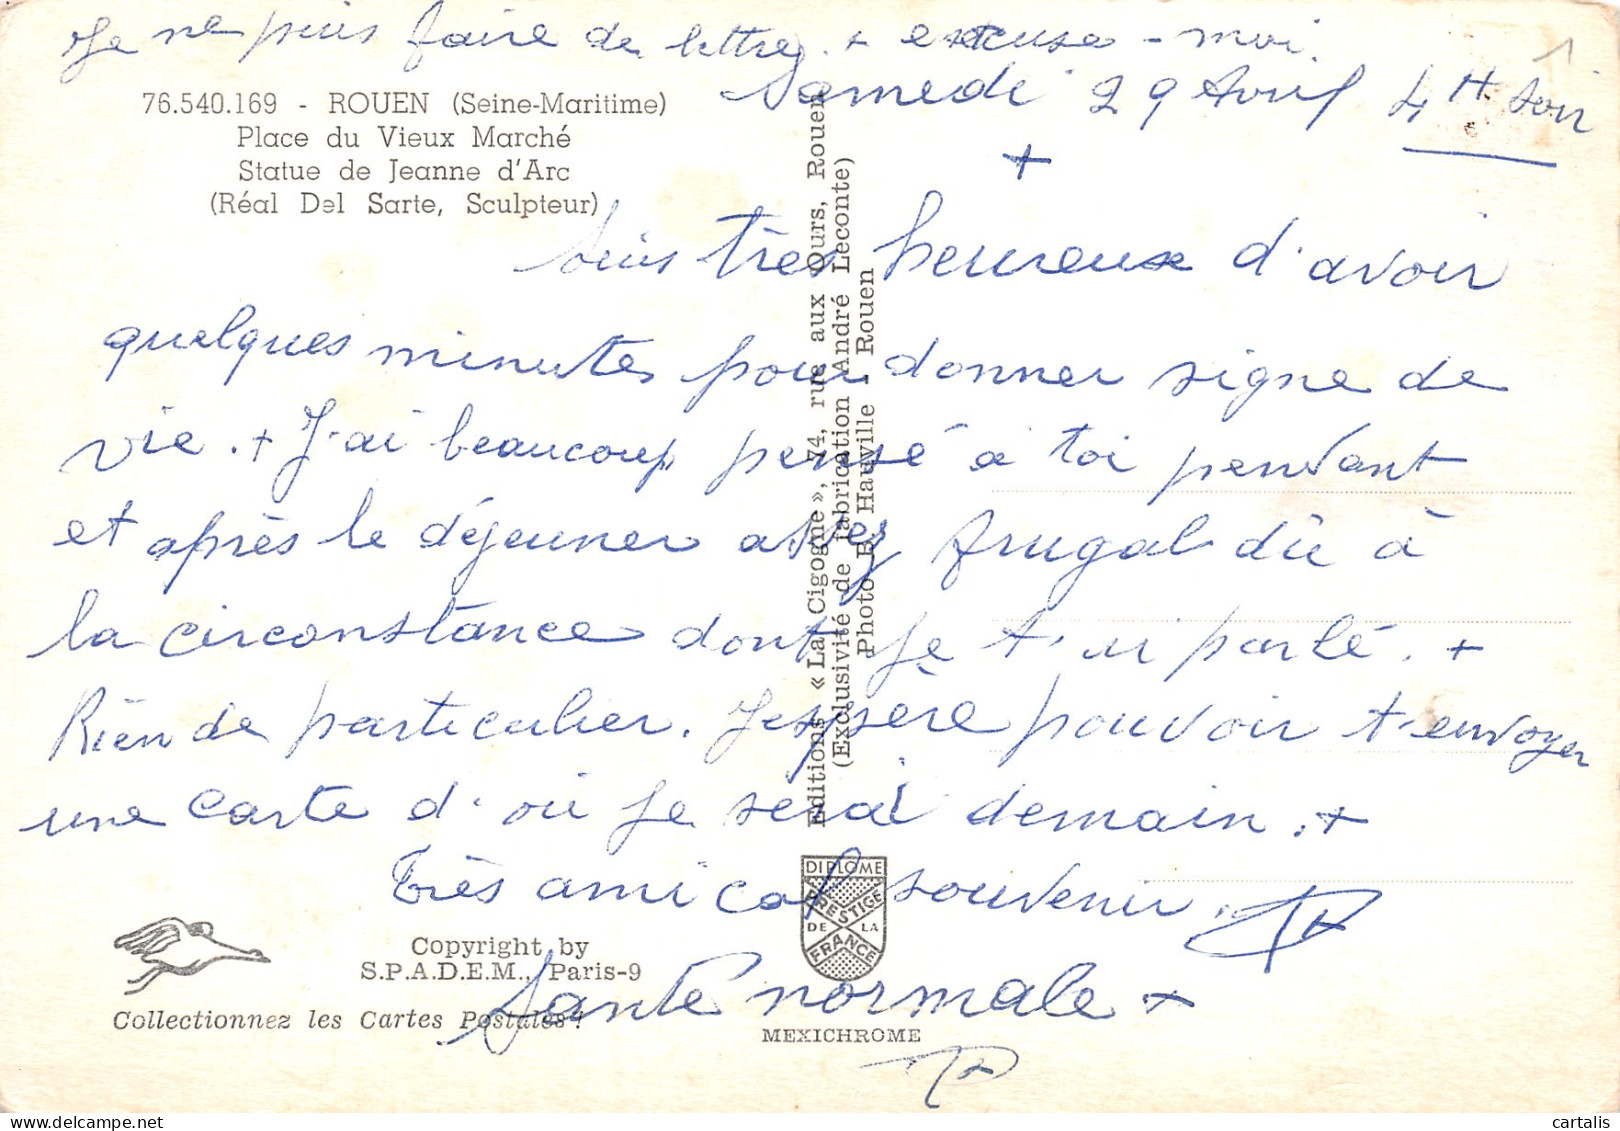 Je ne puis faire de lettre. + excuse-moi
Samedi 29 Avril 4H Soir
76.540.169 - ROUEN (Seine-Maritime)
Place du Vieux Marché
Statue de Jeanne d'Arc
(Réal Del Sarte, Sculpteur)
+
Suis très heureux d'avoir
quelques minutes pour donner signe de
vie. + J'ai beaucoup pensé à toi pendant
et après le déjeuner assez frugal dû à
la circonstance dont je t'ai parlé. +
Rien de particulier. J'espère pouvoir t'envoyer
une carte d'où je serai demain. +
Très amical souvenir.
Santé normale +
Editions « La Cigogne », 74, rue aux Ours, Rouen
(Exclusivité de fabrication André Leconte)
Photo B. Hauville, Rouen
DIPLOME
PRESTIGE
DE LA
FRANCE
Copyright by
S.P.A.D.E.M., Paris-9
Collectionnez les Cartes Postales !
MEXICHROME
cartalis